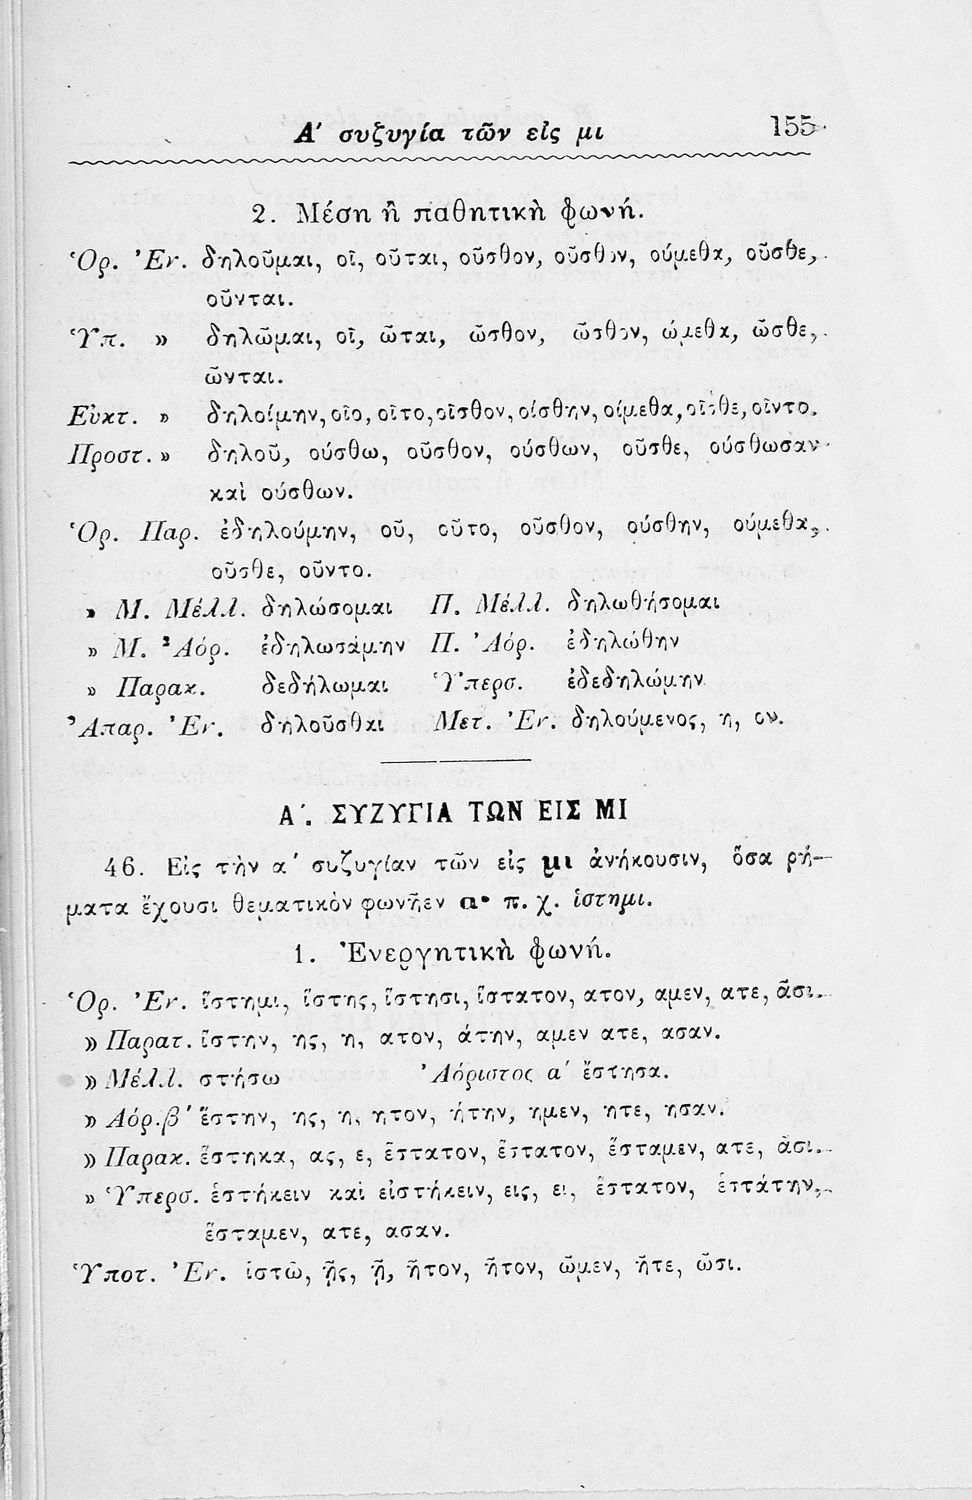 Α΄ συζυγία τῶν εἰς μι 155
2. Μέση ἢ παθητικὴ φωνή.
Ὁρ. Ἐν. δηλοῦμαι, οῖ, οῦται, οῦσθον, οῦσθον, ούμεθα, οῦσθε,
οῦνται.
Ὑπ. » δηλῶμαι, οῖ, ῶται, ῶσθον, ῶσθον, ώμεθα, ῶσθε,
ῶνται.
Εὐκτ. » δηλοίμην, οῖο, οῖτο, οῖσθον, οίσθην, οίμεθα, οῖσθε, οῖντο.
Προστ. » δηλοῦ, ούσθω, οῦσθον, ούσθων, οῦσθε, ούσθωσαν
καὶ ούσθων.
Ὁρ. Παρ. ἐδηλούμην, οῦ, οῦτο, οῦσθον, ούσθην, ούμεθα,
οῦσθε, οῦντο.
» Μ. Μέλλ. δηλώσομαι Π. Μέλλ. δηλωθήσομαι
» Μ. Ἀόρ. ἐδηλωσάμην Π. Ἀόρ. ἐδηλώθην
» Παρακ. δεδήλωμαι Ὑπερσ. ἐδεδηλώμην
Ἀπαρ. Ἐν. δηλοῦσθαι Μετ. Ἐν. δηλούμενος, η, ον.
Α΄. ΣΥΖΥΓΙΑ ΤΩΝ ΕΙΣ ΜΙ
46. Εἰς τὴν α΄ συζυγίαν τῶν εἰς μι ἀνήκουσιν, ὅσα ῥή-
ματα ἔχουσι θεματικὸν φωνῆεν α· π. χ. ἵστημι.
1. Ἐνεργητικὴ φωνή.
Ὁρ. Ἐν. ἵστημι, ἵστης, ἵστησι, ἵστατον, ατον, αμεν, ατε, ᾶσι.
» Παρατ. ἵστην, ης, η, ατον, άτην, αμεν ατε, ασαν.
» Μέλλ. στήσω Ἀόριστος α΄ ἔστησα.
» Ἀόρ. β΄ ἔστην, ης, η, ητον, ήτην, ημεν, ητε, ησαν.
» Παρακ. ἕστηκα, ας, ε, ἕστατον, ἕστατον, ἕσταμεν, ατε, ᾶσι.
» Ὑπερσ. ἑστήκειν καὶ εἱστήκειν, εις, ει, ἕστατον, ἑστάτην,
ἕσταμεν, ατε, ασαν.
Ὑποτ. Ἐν. ἱστῶ, ῇς, ῇ, ῆτον, ῆτον, ῶμεν, ῆτε, ῶσι.